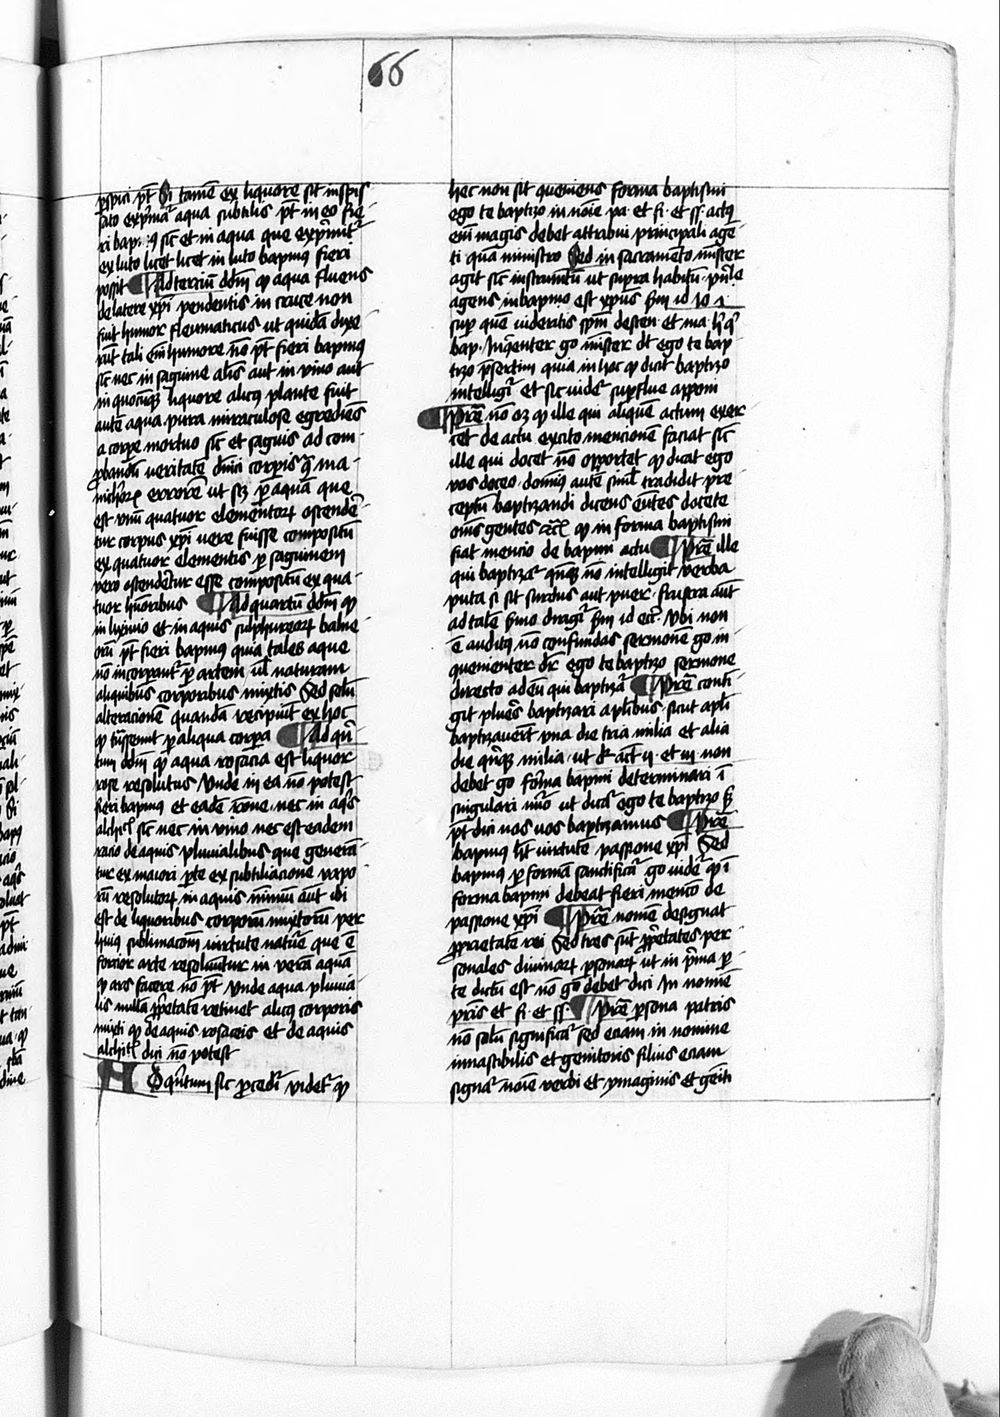 66
p̱spici pt̄ Si tamē ex liquore sit inspis
sato exp̄mat̉ aqua subtilis pt̄ in eo fie
ri bap. sic̄ et in aqua que exp̄mit̉
ex luto licet licet in luto bapmus fieri
possit Ad terciū dd̄m ꝙ aqua fluens
de latere xp̄i pendentis in cruce non
fuit humor fleumaticus ut quidā dixe
rūt tali em̄ humore nō pt̄ fieri bapmus
sic̄ nec in saguine alis aut in vino aut
in quocūqꝫ liquore alicꝰ plante fuit
autē aqua pura miraculose egrediēs
a corpe mortuo sic̄ et saguis ad com
ꝓbandū veritatē dn̄ici corpis ma
errorē ut sꝫ p̱ aquam que
est vnū quatuor elementoꝝ ostende
tur corpus xp̄i vere fuisse compositū
ex quatuor elementis p̱ saguinem
vero ostenderetur esse compositū ex qua
tuor humoribus Ad quartū dd̄m ꝙ
in lixiuio et in aquis sulphureoꝝ balne
oꝝ pt̄ fieri bapmus quia tales aque
nō incorporant̉ p̱ artem ul̄ naturam
aliquibus corporibus mixtis Sed solū
alteracionē quandā recipiūt ex hoc
ꝙ trāsseunt p̱ aliqua corpa Ad qn̄
tum dd̄m ꝙ aqua rosacia est liquor
rose resolutus Unde in ea nō potest
fieri bapmus et eadē rōne nec in aq̄s
alchiꝭ sic̄ nec in vino nec est eadem
racio de aquis pluuialibus que generā
tur ex maiori p̱te ex subtiliacione vapo
rū resolutoꝝ in aquis minimū aut ibi
est de liquoribus corporum mixtorū per
huiꝰ sublimacōm virtute nature que ē
forcior arte resoluuntur in verā aquā
ꝙ ars facere nō pt̄ Unde aqua pluuia
lis nullā ꝓpetatē retinet alicꝰ corporis
mixti ꝙ de aquis rosaceis et de aquis
alchiꝭ dici nō potest
Ad qn̄tum sic ꝓcedit̉ videt̉ ꝙ
hec non sit queniens forma baptismi
ego te baptizo in noīe pa. et fi. et ss̄. actꝰ
em̄ magis debet attribui principali age
ti quā ministro Sed in sacramento mister
agit sic̄ instrumētū ut supra habitū. pn̄le
agens in bapmo est xpus
sup̱ quē videritis spm̄ descen. et ma.
bap. Inqenienter go mister dt̄ ego te bap
tizo p̄sertim quia in hoc ꝙ dicit baptizo
intelligit̉ et sic videt̉ supflue apponi
Pret̉ nō oꝫ ꝙ ille qui aliquē actum exer
cet de actu exc̄ito mencionē faciat sic̄
ille qui docet nō opportet ꝙ dicat ego
vos doceo. dominus autē simul tradidit pre
ceptū baptizandi dicens euntes docete
om̄s gentes ꝙ in forma baptismi
fiat mencio de bapmi actu Pret̉ ille
qui baptizat̉ qn̄qꝫ nō intelligit verba
puta si sit surdus aut puer. frustra aut
ad talē sermo dirigit̉ Vbi non
ē auditus nō confundas sermonē go in
quenienter dr̄ ego te baptizo sermone
directo ad eū qui baptizat̉ Pret̉ conti
git plures baptizari a pluribus sicut apl̄i
baptizauerūt vna die tria milia et alia
die qn̄qꝫ milia. ut act̄ ii. et iii non
debet go forma bapmi determinari ī
singulari ut dicat̉ ego te baptizo
pt̄ dici nos uos baptizamus Pret̉
bapmus ht̄ virtutē passione xp̄i Sed
bapmus p̱ formā sanctificat̉ go videt̉ ꝙ ī
forma bapmi debeat fieri mencō de
passione xp̄i Pret̉ nomē designat
ꝓprietatē rei Sed tres sūt ꝓp̄etates per
sonales diuinaꝝ psonaꝝ ut in p̄ma p̱
te dictū est nō go debet dici In nomē
pris̄ et fi. et ss̄. Pret̉ persona patris
nō solū significat̉ sed eciam in nomine
innascibilis et genitoris filius eciam
signat̉ noīe verbi et ymaginis et geniti